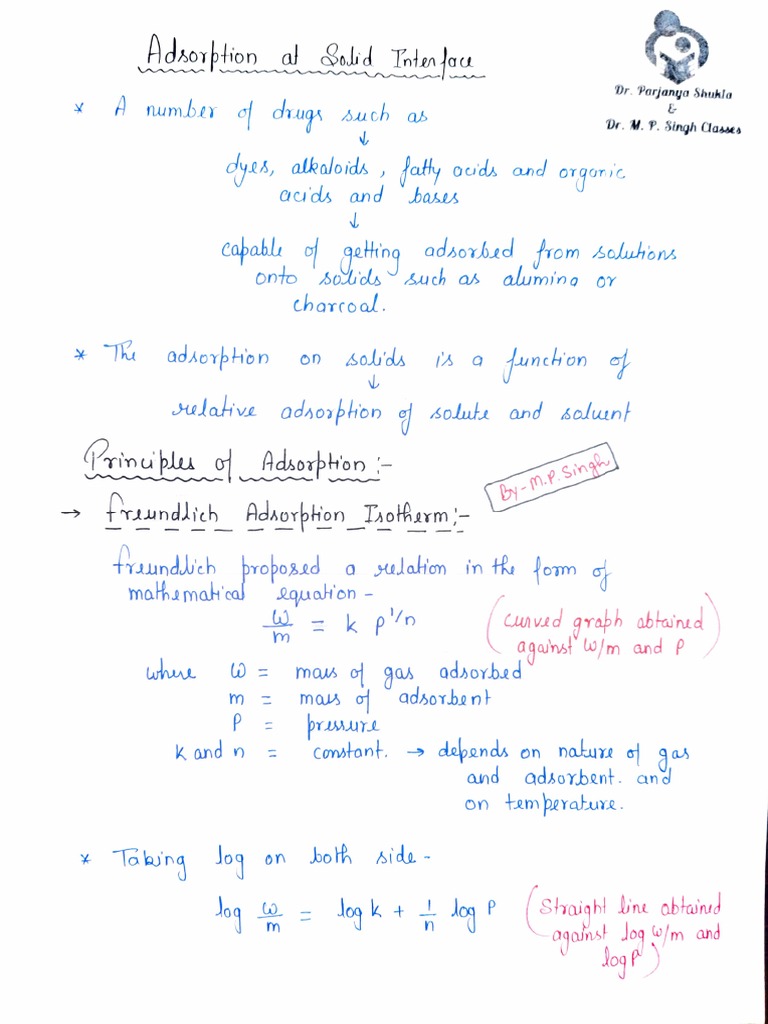 Adsorption at Solid Interface
Dr. Parjanya Shukla
&
Dr. M. P. Singh Classes
* A number of drugs such as
↓
dyes, alkaloids, fatty acids and organic
acids and bases
↓
capable of getting adsorbed from solutions
onto solids such as alumina or
charcoal.
* The adsorption on solids is a function of
↓
relative adsorption of solute and solvent
Principles of Adsorption :-
By - M.P. Singh
→ Freundlich Adsorption Isotherm :-
Freundlich proposed a relation in the form of
mathematical equation -
w/m = k p^1/n (curved graph obtained
against w/m and P)
where w = mass of gas adsorbed
m = mass of adsorbent
P = pressure
k and n = constant. → depends on nature of gas
and adsorbent. and
on temperature.
* Taking log on both side -
log w/m = log k + 1/n log P (Straight line obtained
against log w/m and
log P)